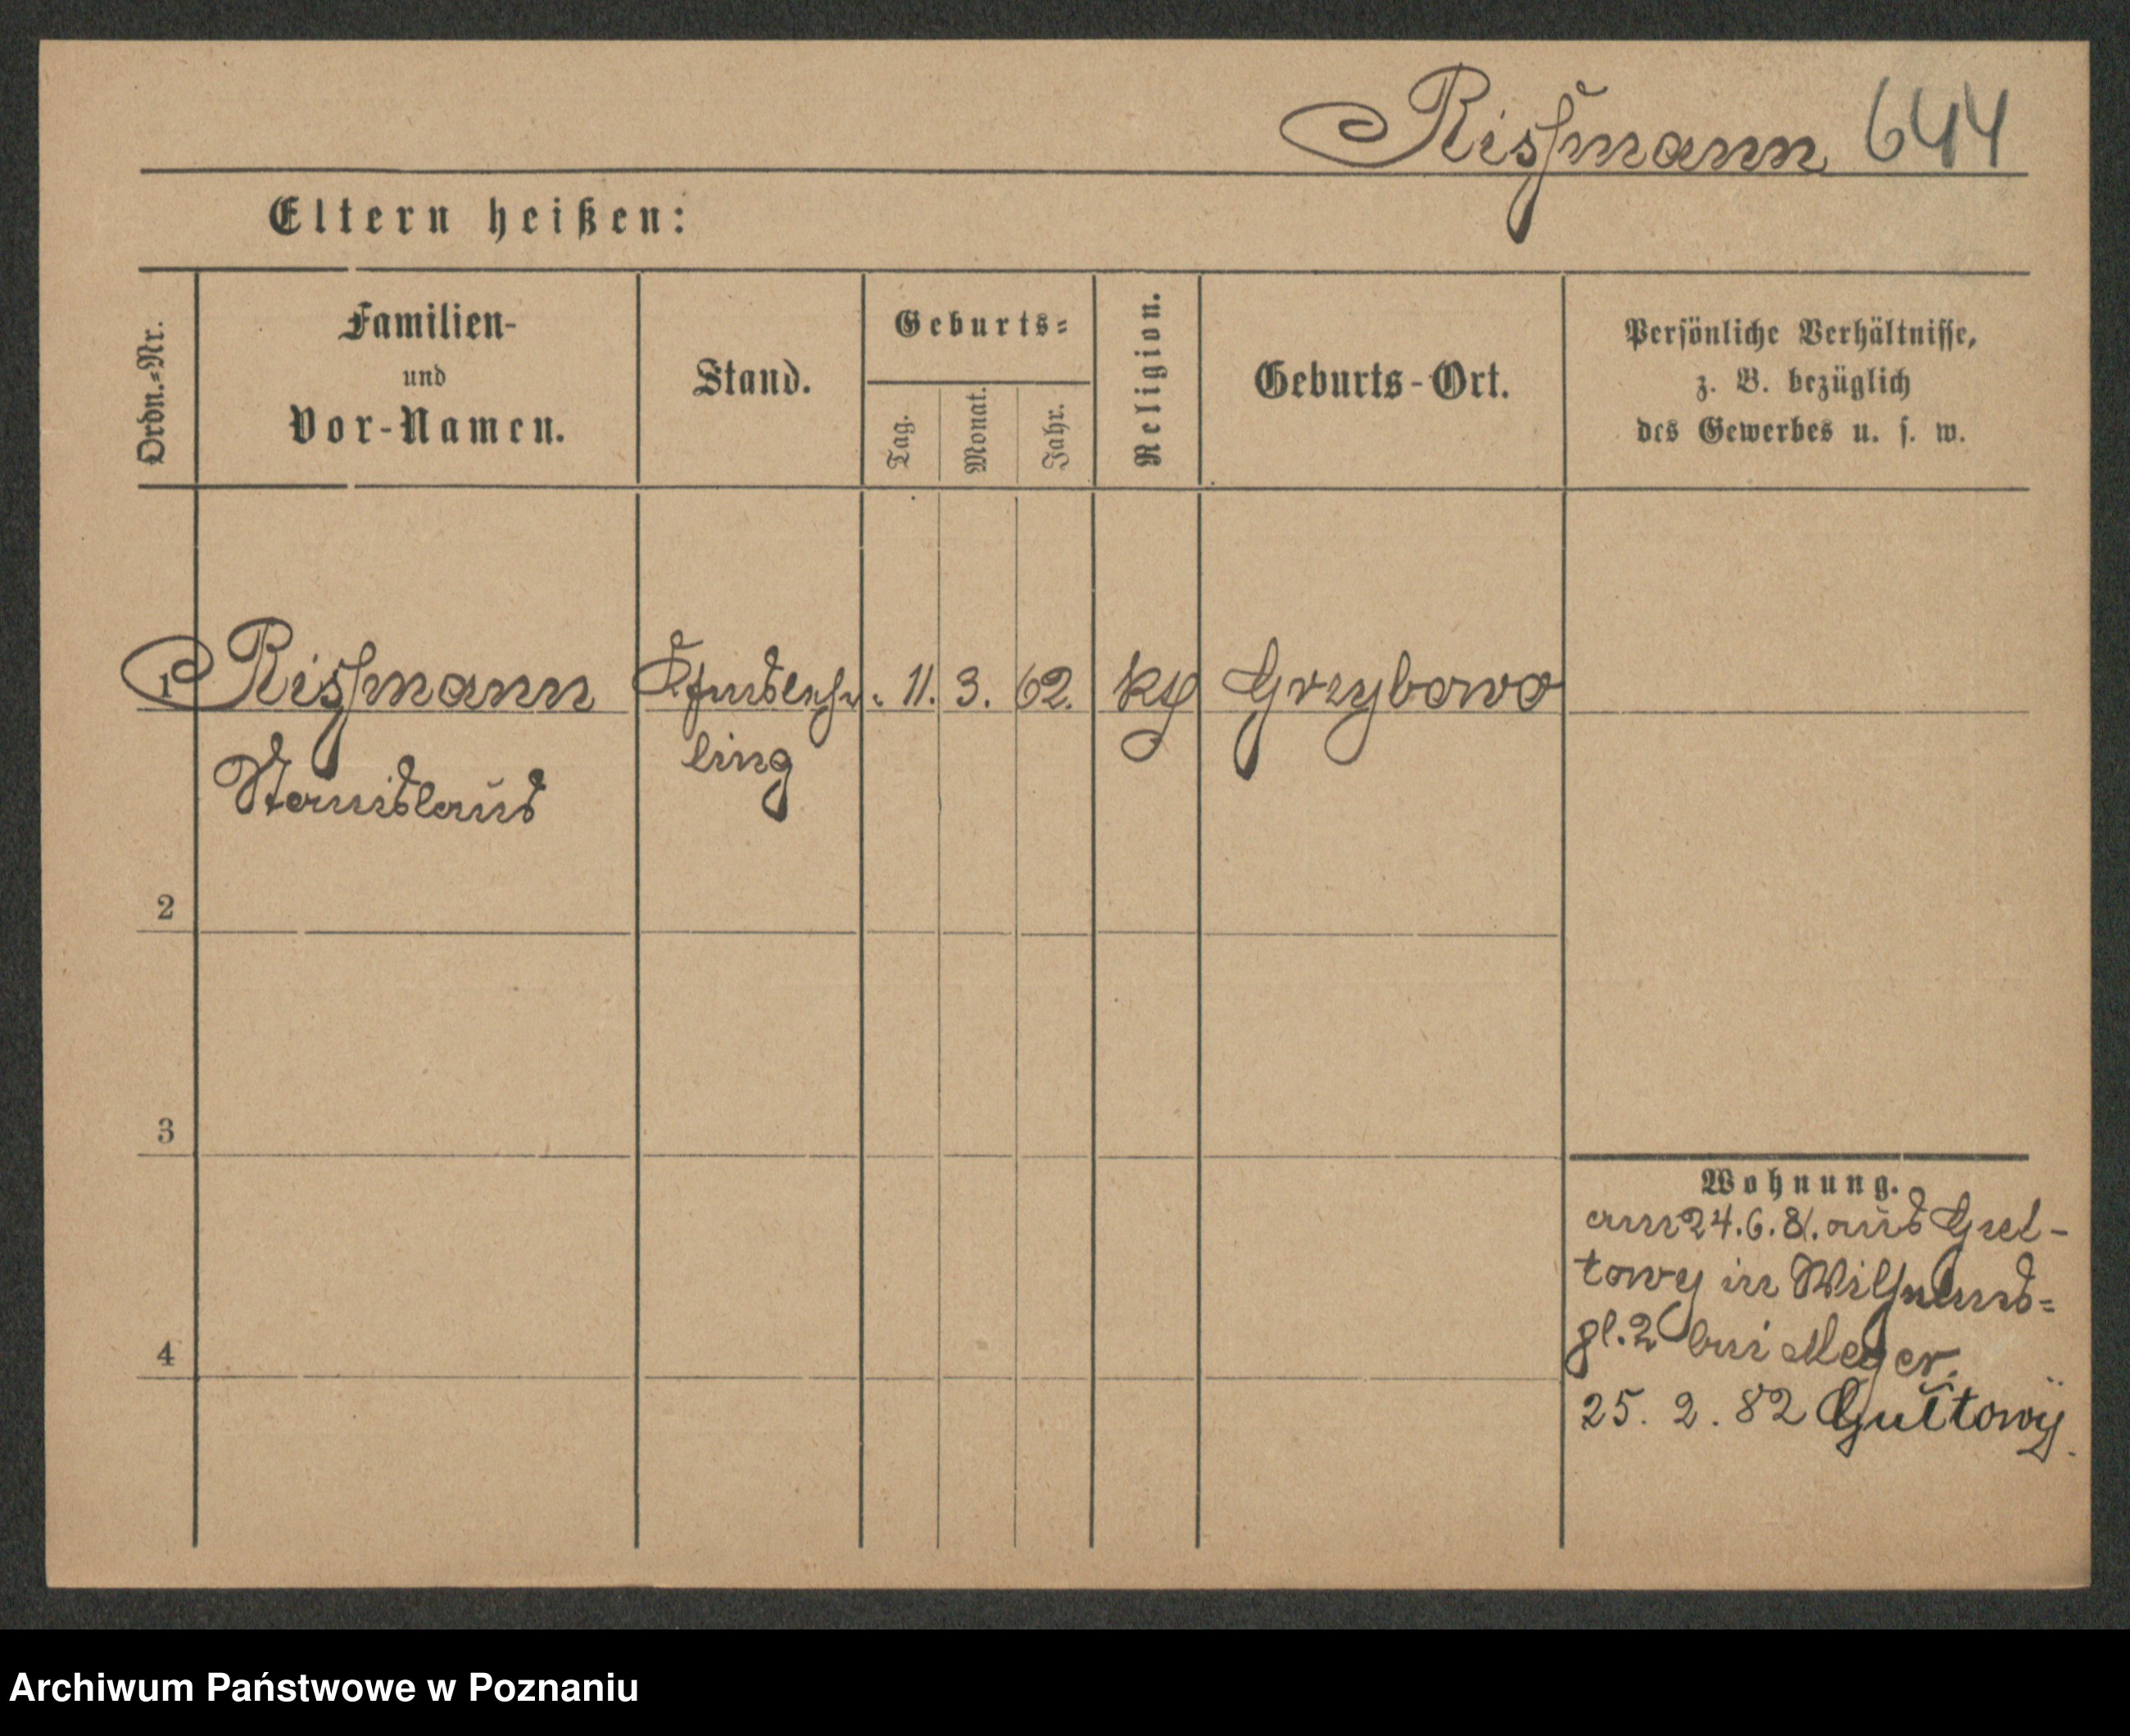 Rissmann 644
Eltern heißen:
Ordn.=Nr.
Familien-
und
Vor-Namen.
Stand.
Geburts=
Tag.
Monat.
Jahr.
Religion.
Geburts-Ort.
Persönliche Verhältnisse,
z. B. bezüglich
des Gewerbes u. s. w.
1 Rissmann 11. 3. 62. kth Grzybowo
ling
Stanislaus
2
3
4
Wohnung.
am 24.6.81. aus Gul-
towy in Wilhelms=
pl. 2 bei Meyer.
25. 2. 82 Gultowÿ.
Archiwum Państwowe w Poznaniu